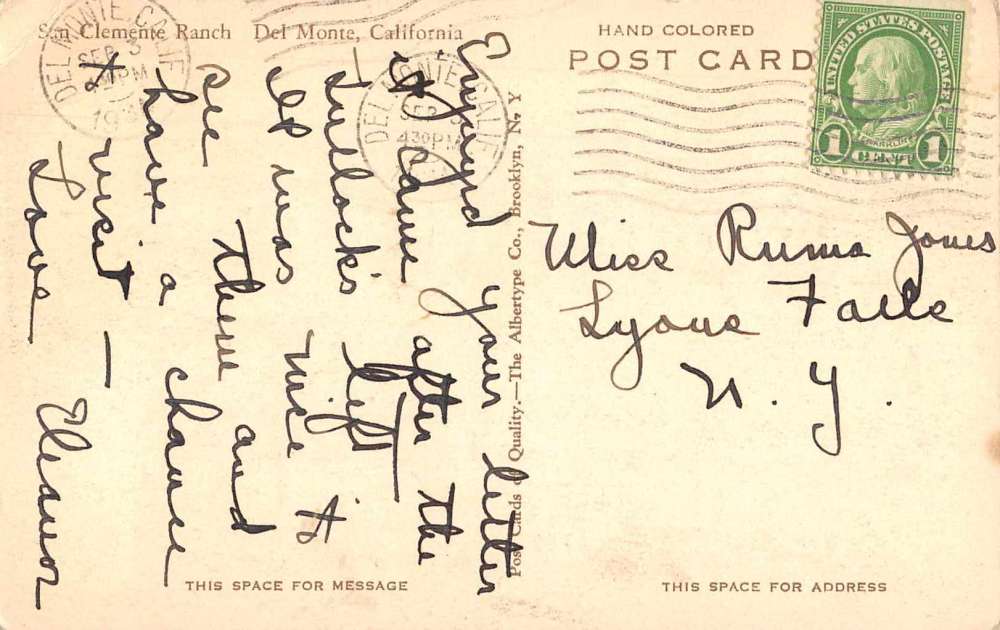 San Clemente Ranch Del Monte, California
DEL MONTE, CALIF.
SEP 3
430 PM
DEL MONTE, CALIF.
SEP 3
430 PM
HAND COLORED
POST CARD
UNITED STATES POSTAGE
FRANKLIN
1 CENT 1
Enjoyed your letter
it came after the
Tullock's left
It was nice to
see them and
have a chance
to visit —
Love — Eleanor
Post Cards of Quality.—The Albertype Co., Brooklyn, N. Y
Miss Ruma Jones
Lyons Falls
N. Y.
THIS SPACE FOR MESSAGE
THIS SPACE FOR ADDRESS